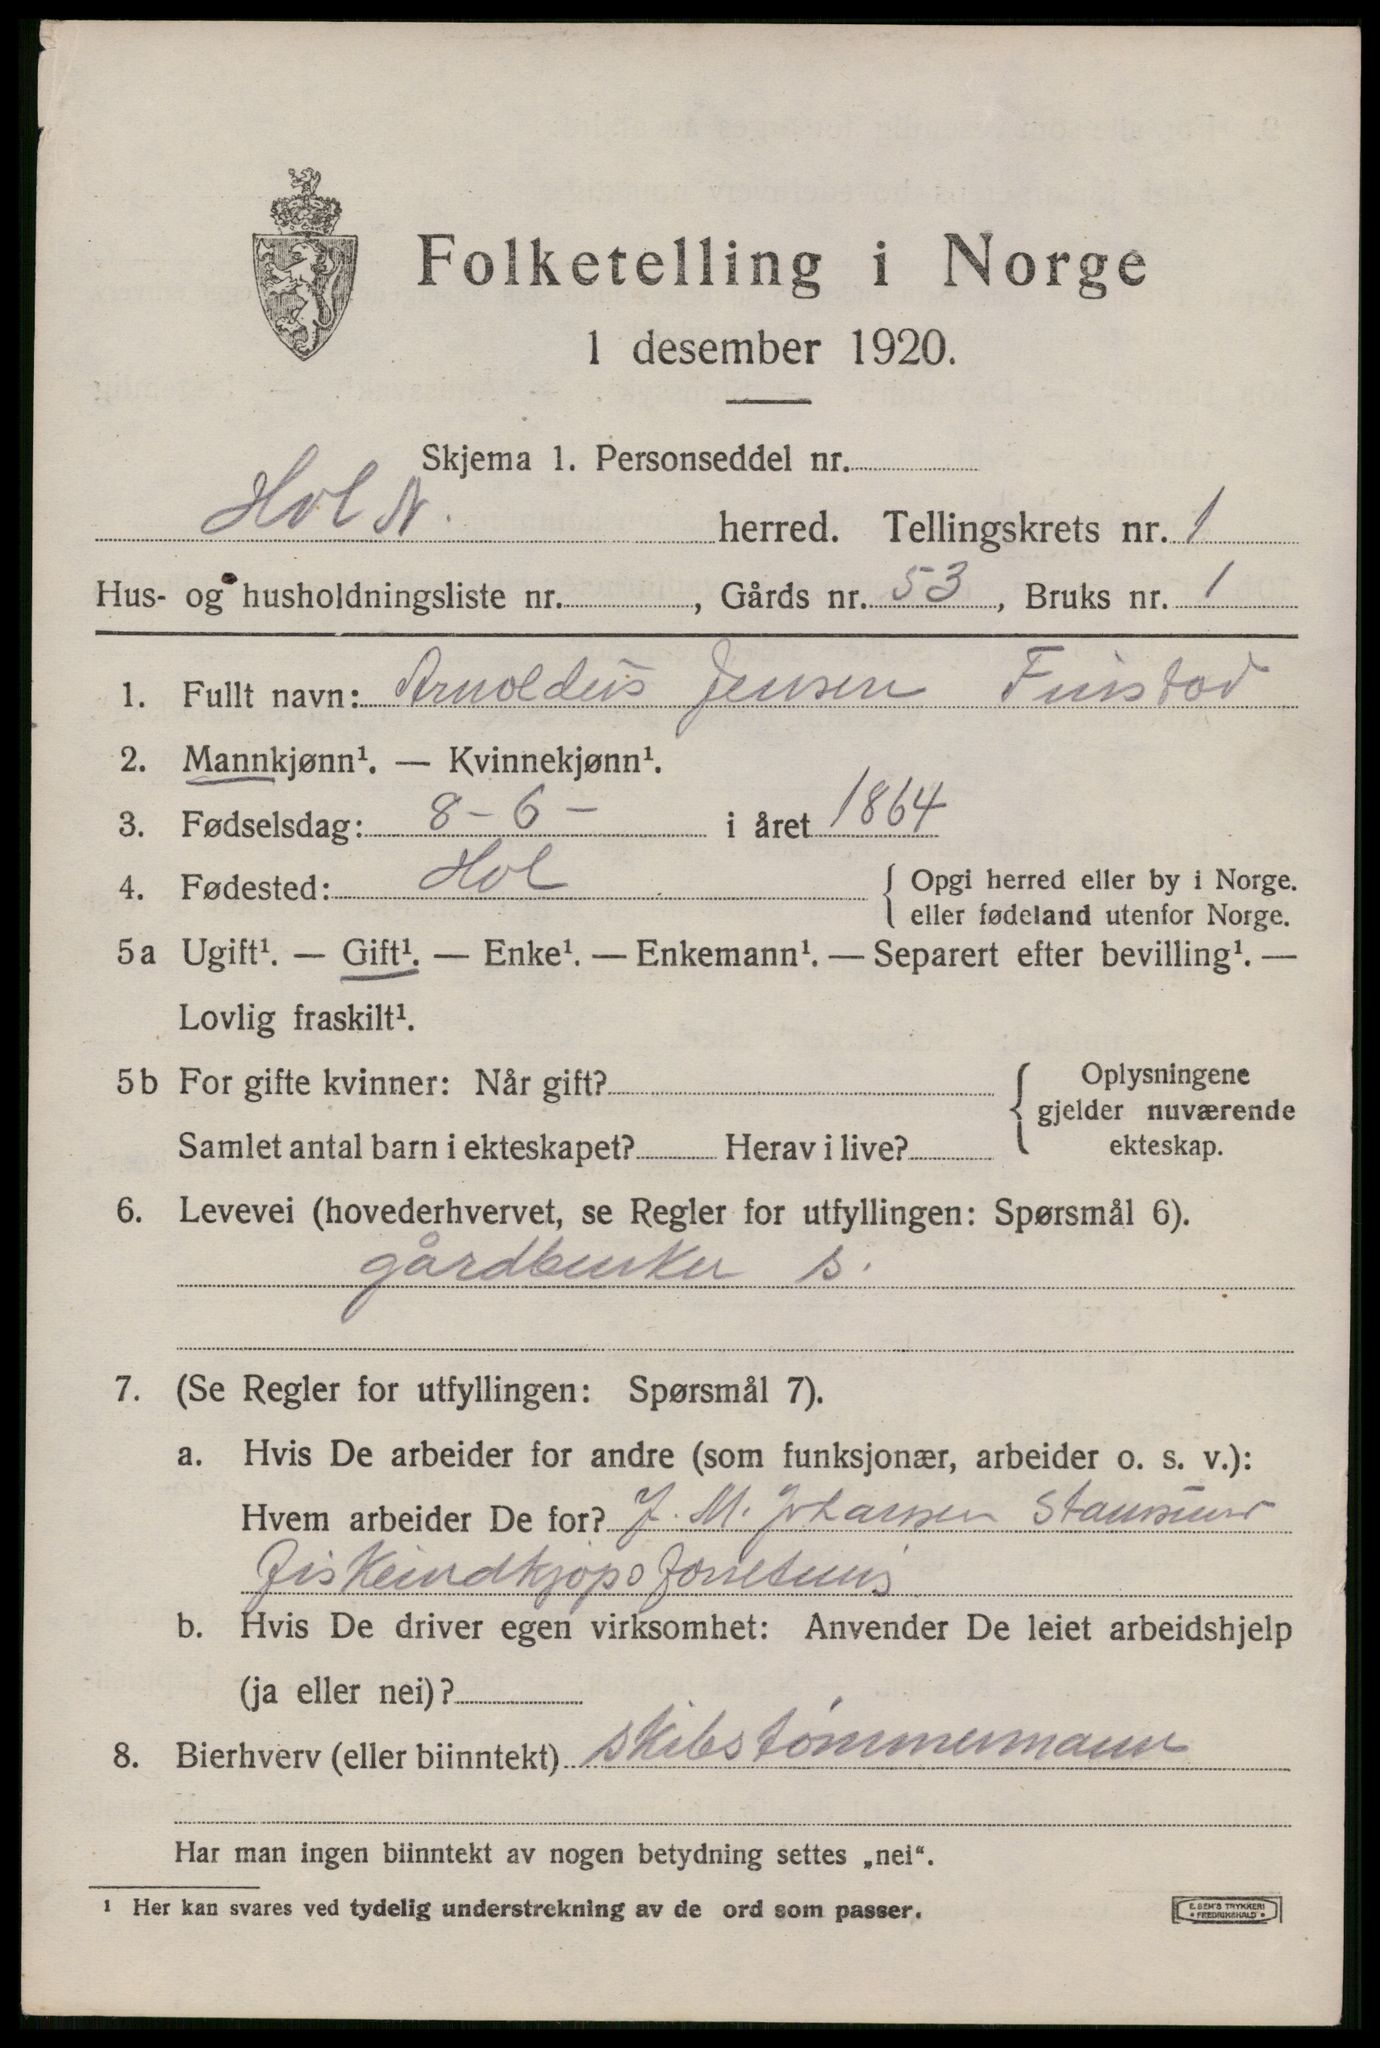 Folketelling i Norge
1 desember 1920.
Skjema 1. Personseddel nr.
Hol N. herred. Tellingskrets nr. 1
Hus- og husholdningsliste nr. , Gårds nr. 53 , Bruks nr. 1
1. Fullt navn: Arnoldus Jensen Finstad
2. Mannkjønn¹. — Kvinnekjønn¹.
3. Fødselsdag: 8-6- i året 1864
4. Fødested: Hol { Opgi herred eller by i Norge.
eller fødeland utenfor Norge.
5a Ugift¹. — Gift¹. — Enke¹. — Enkemann¹. — Separert efter bevilling¹. —
Lovlig fraskilt¹.
5b For gifte kvinner: Når gift? { Oplysningene
gjelder nuværende
Samlet antal barn i ekteskapet? Herav i live? ekteskap.
6. Levevei (hovederhvervet, se Regler for utfyllingen: Spørsmål 6).
gårdbruker s.
7. (Se Regler for utfyllingen: Spørsmål 7).
a. Hvis De arbeider for andre (som funksjonær, arbeider o. s. v.):
Hvem arbeider De for? J. M. Johansen Stamsund
fiskeindkjøps
b. Hvis De driver egen virksomhet: Anvender De leiet arbeidshjelp
(ja eller nei)?
8. Bierhverv (eller biinntekt) skibstømmermann
Har man ingen biinntekt av nogen betydning settes „nei“.
¹ Her kan svares ved tydelig understrekning av de ord som passer.
E. SEM'S TRYKKERI
• FREDRIKSHALD •